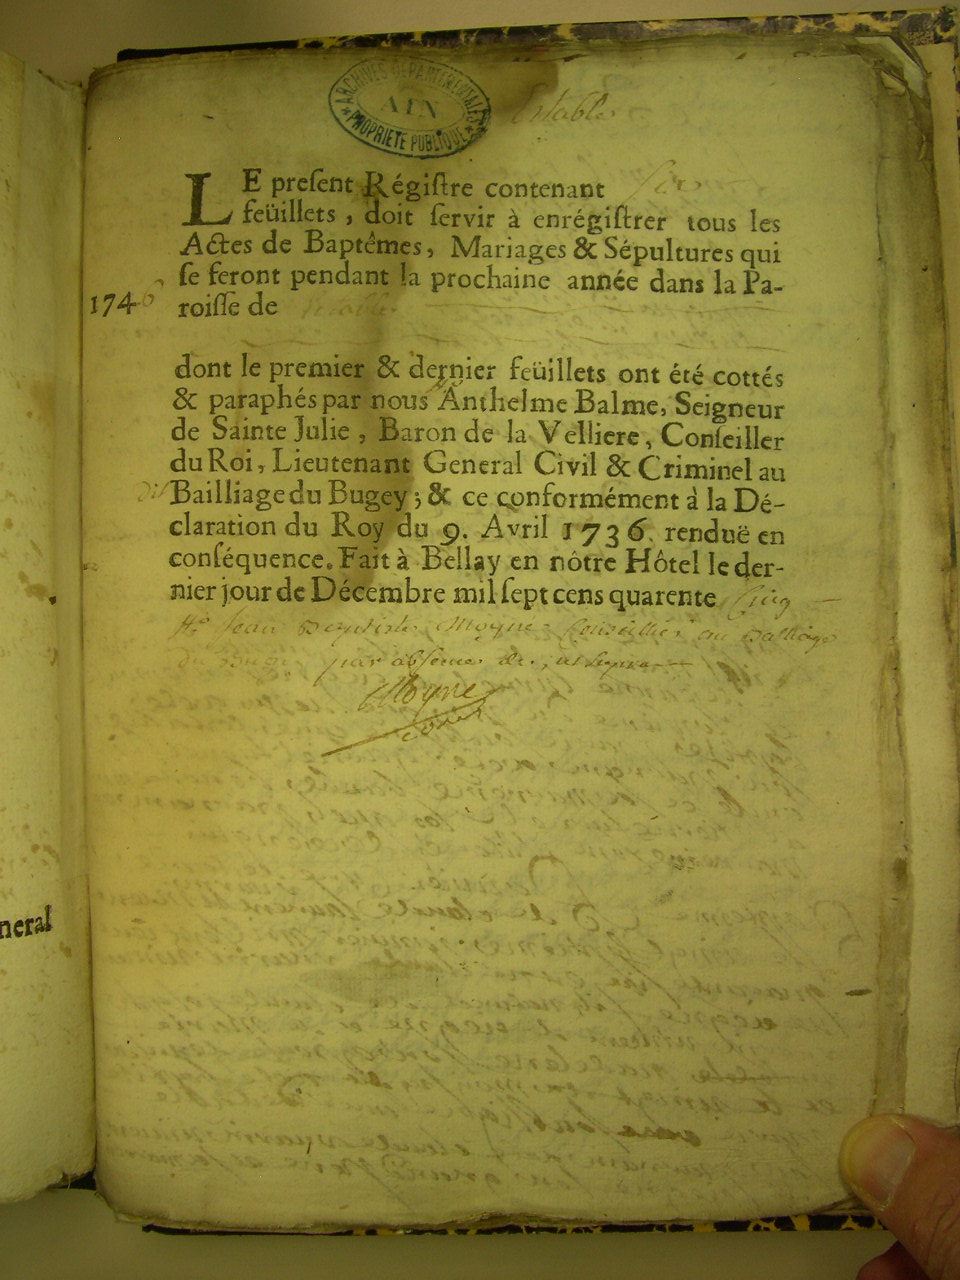 ARCHIVES DEPARTEMENTALES
AIN
PROPRIETE PUBLIQUE
LE preſent Régiſtre contenant
feüillets, doit ſervir à enrégiſtrer tous les
Actes de Baptêmes, Mariages & Sépultures qui
ſe feront pendant la prochaine année dans la Pa-
1746 roiſſe de
dont le premier & dernier feüillets ont été cottés
& paraphés par nous Anthelme Balme, Seigneur
de Sainte Julie, Baron de la Velliere, Conſeiller
du Roi, Lieutenant General Civil & Criminel au
Bailliage du Bugey; & ce conformément à la Dé-
claration du Roy du 9. Avril 1736. renduë en
conſéquence. Fait à Bellay en nôtre Hôtel le der-
nier jour de Décembre mil ſept cens quarente Cinq
Jean Baptiste Moyne Conseiller au Balliage
du Bugey par absence de
Moyne
neral